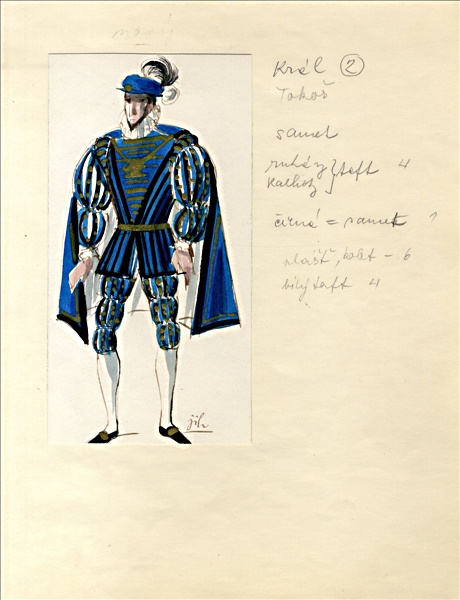 Král ②
Tokoš
samet
rukávy } taft 4
kalhoty
černé = samet 1
plášť, kabát - 6
bílý taft 4